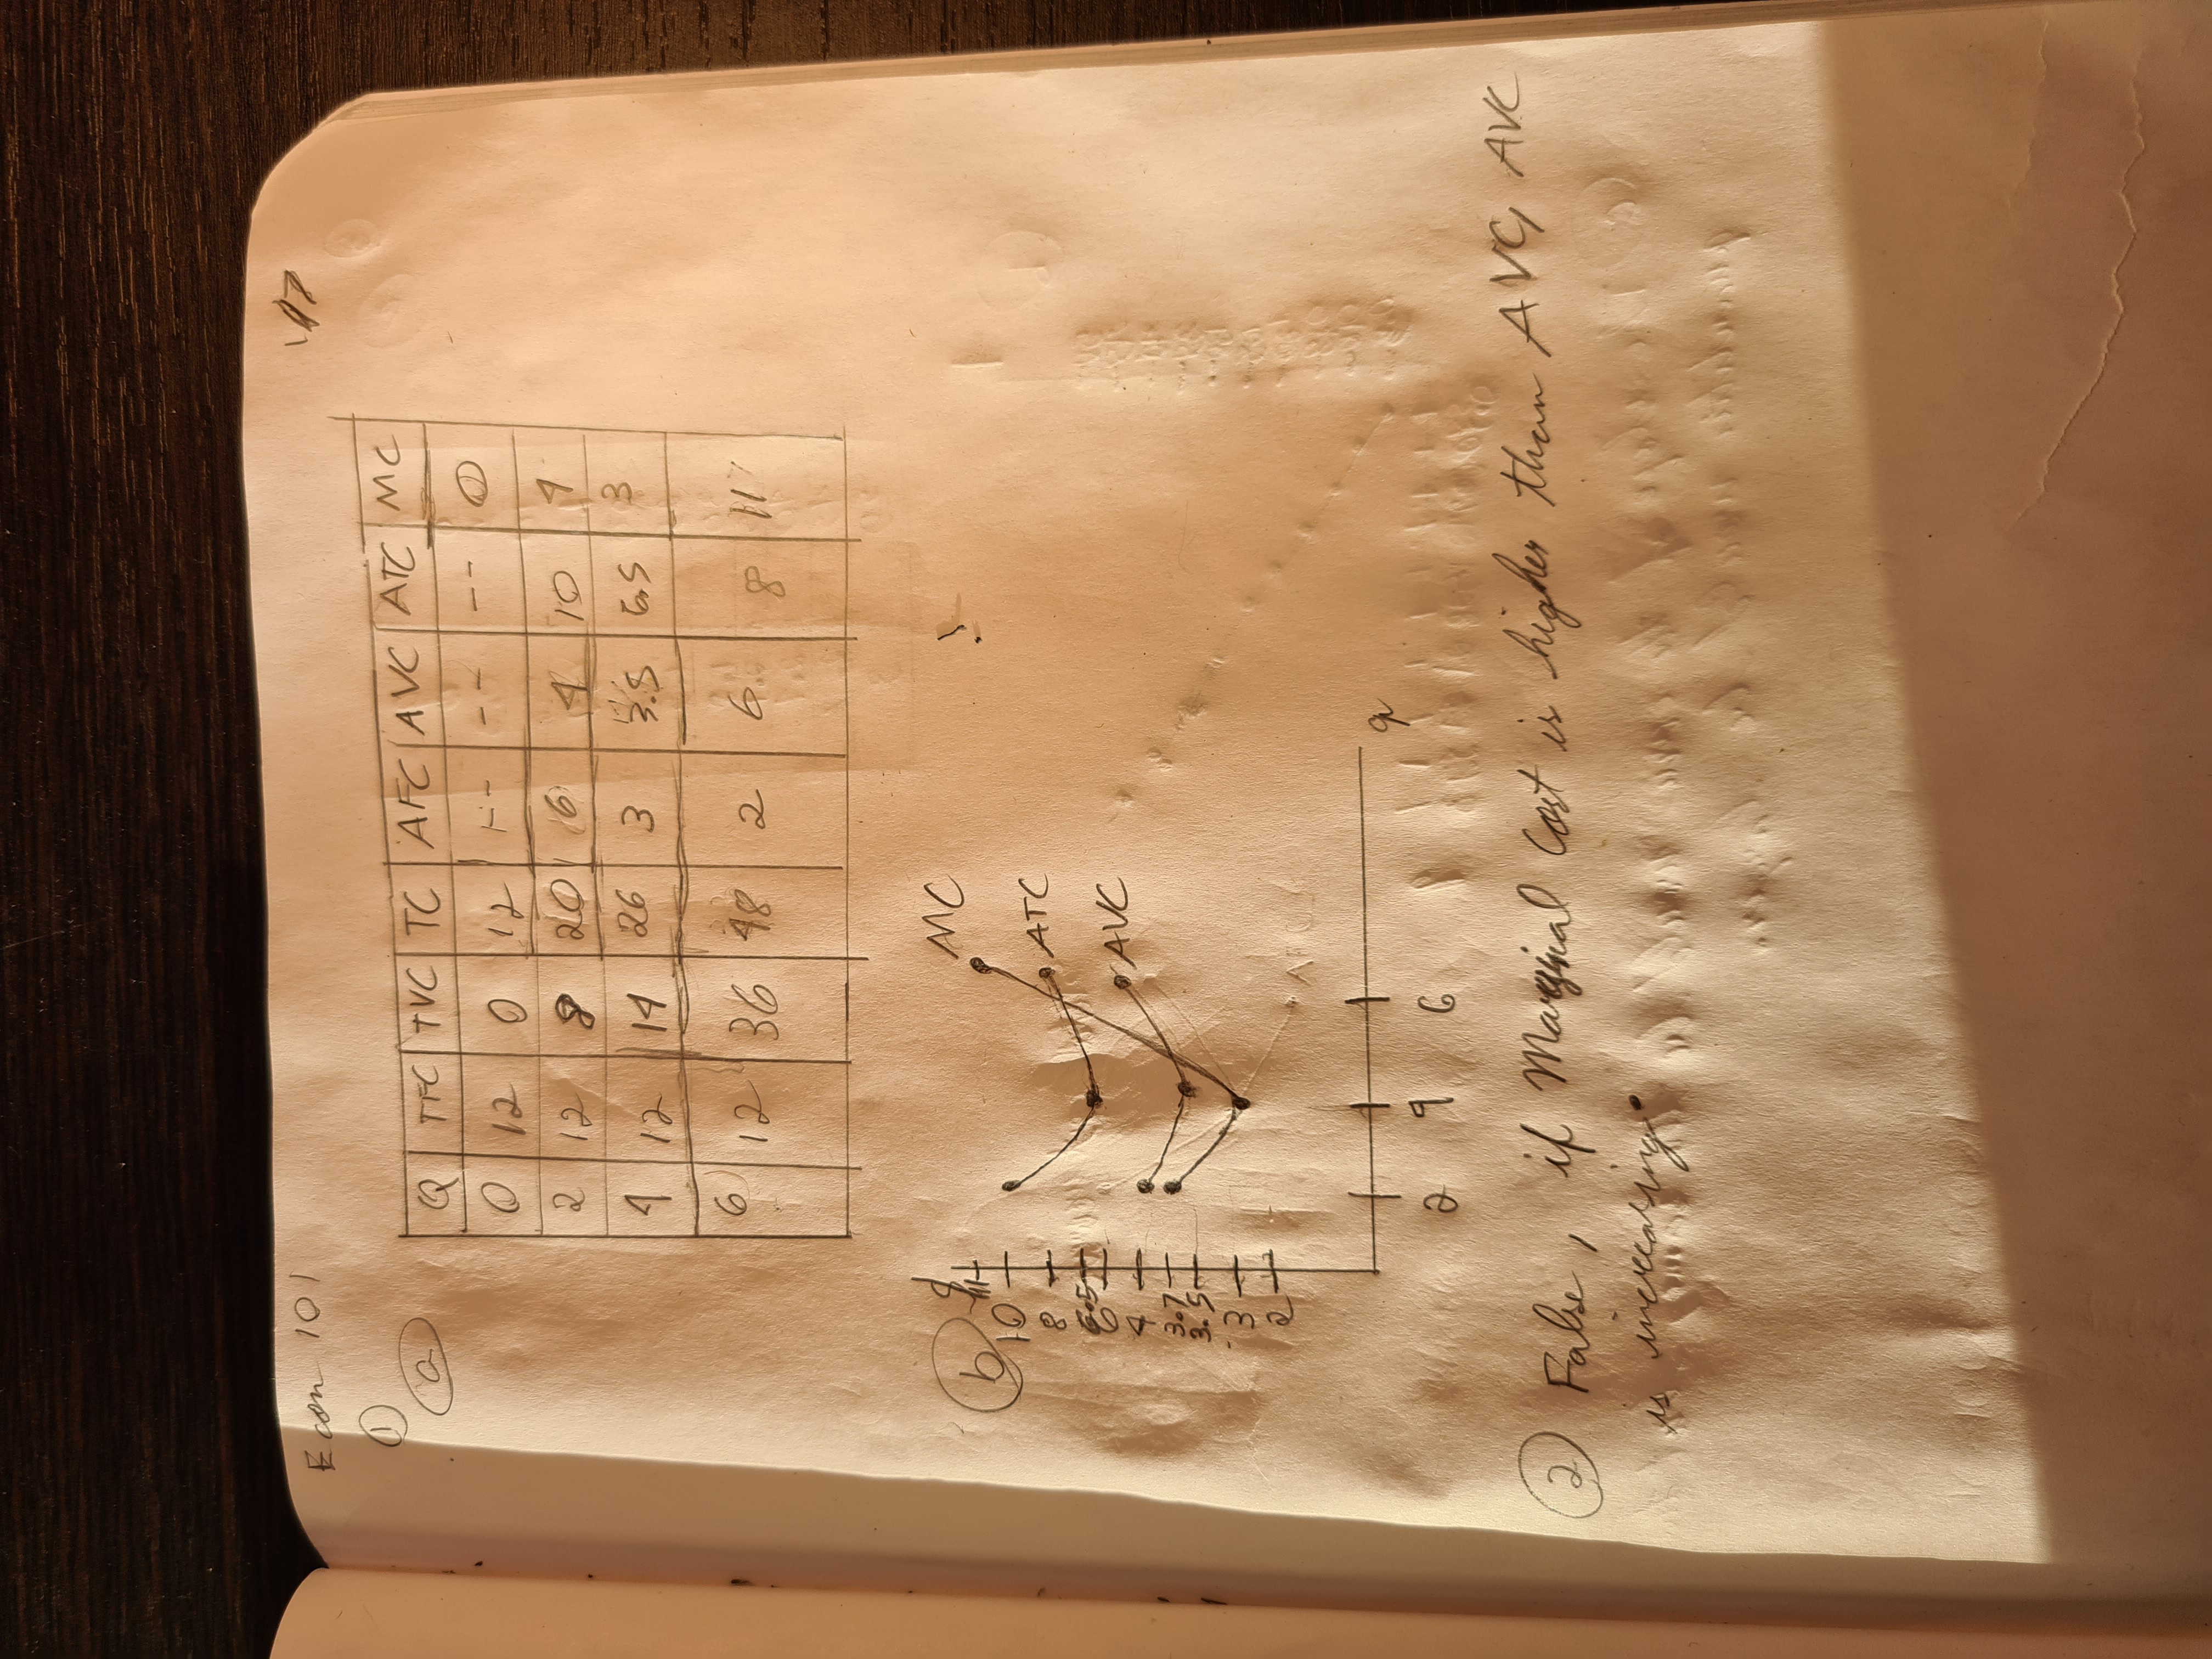 Econ 101
1
a
Q TFC TVC TC AFC AVC ATC MC
0 12 0 12 -- -- -- 0
2 12 8 20 6 4 10 4
4 12 14 26 3 3.5 6.5 3
6 12 36 48 2 6 8 11
b
MC
11
10
ATC
8
6.5
6
AVC
4
3.7
3.5
3
2
AFC
q
2 4 6
2 False, if Marginal Cost is higher than AVC, AVC
is increasing.